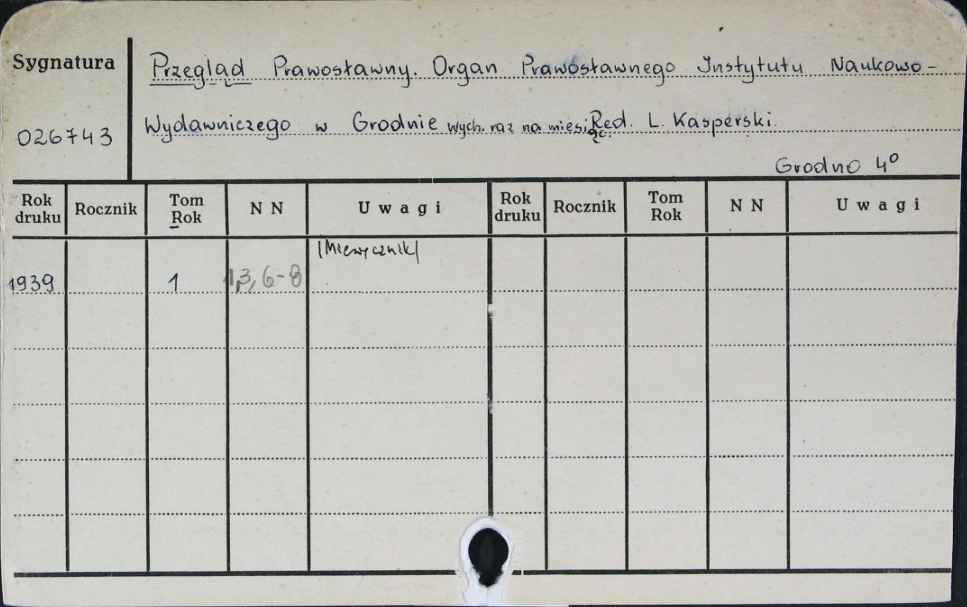 Sygnatura
026743
Przegląd Prawosławny. Organ Prawosławnego Instytutu Naukowo-
Wydawniczego w Grodnie wych. raz na miesiąc. Red. L. Kasperski.
Grodno 4º
Rok druku Rocznik Tom Rok N N Uwagi Rok druku Rocznik Tom Rok N N Uwagi
/Miesięcznik/
1939 1 1,3,6-8